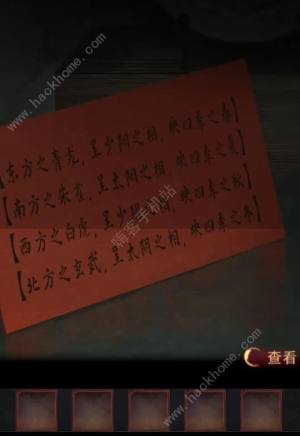 www.hackhome.com
【东方之青龙，呈少阳之相，映四季之春】
【南方之朱雀，呈太阳之相，映四季之夏】
【西方之白虎，呈少阴之相，映四季之秋】
【北方之玄武，呈太阴之相，映四季之冬】
嗨客手机站
www.hackhome.com
查看
www.hackhome.com